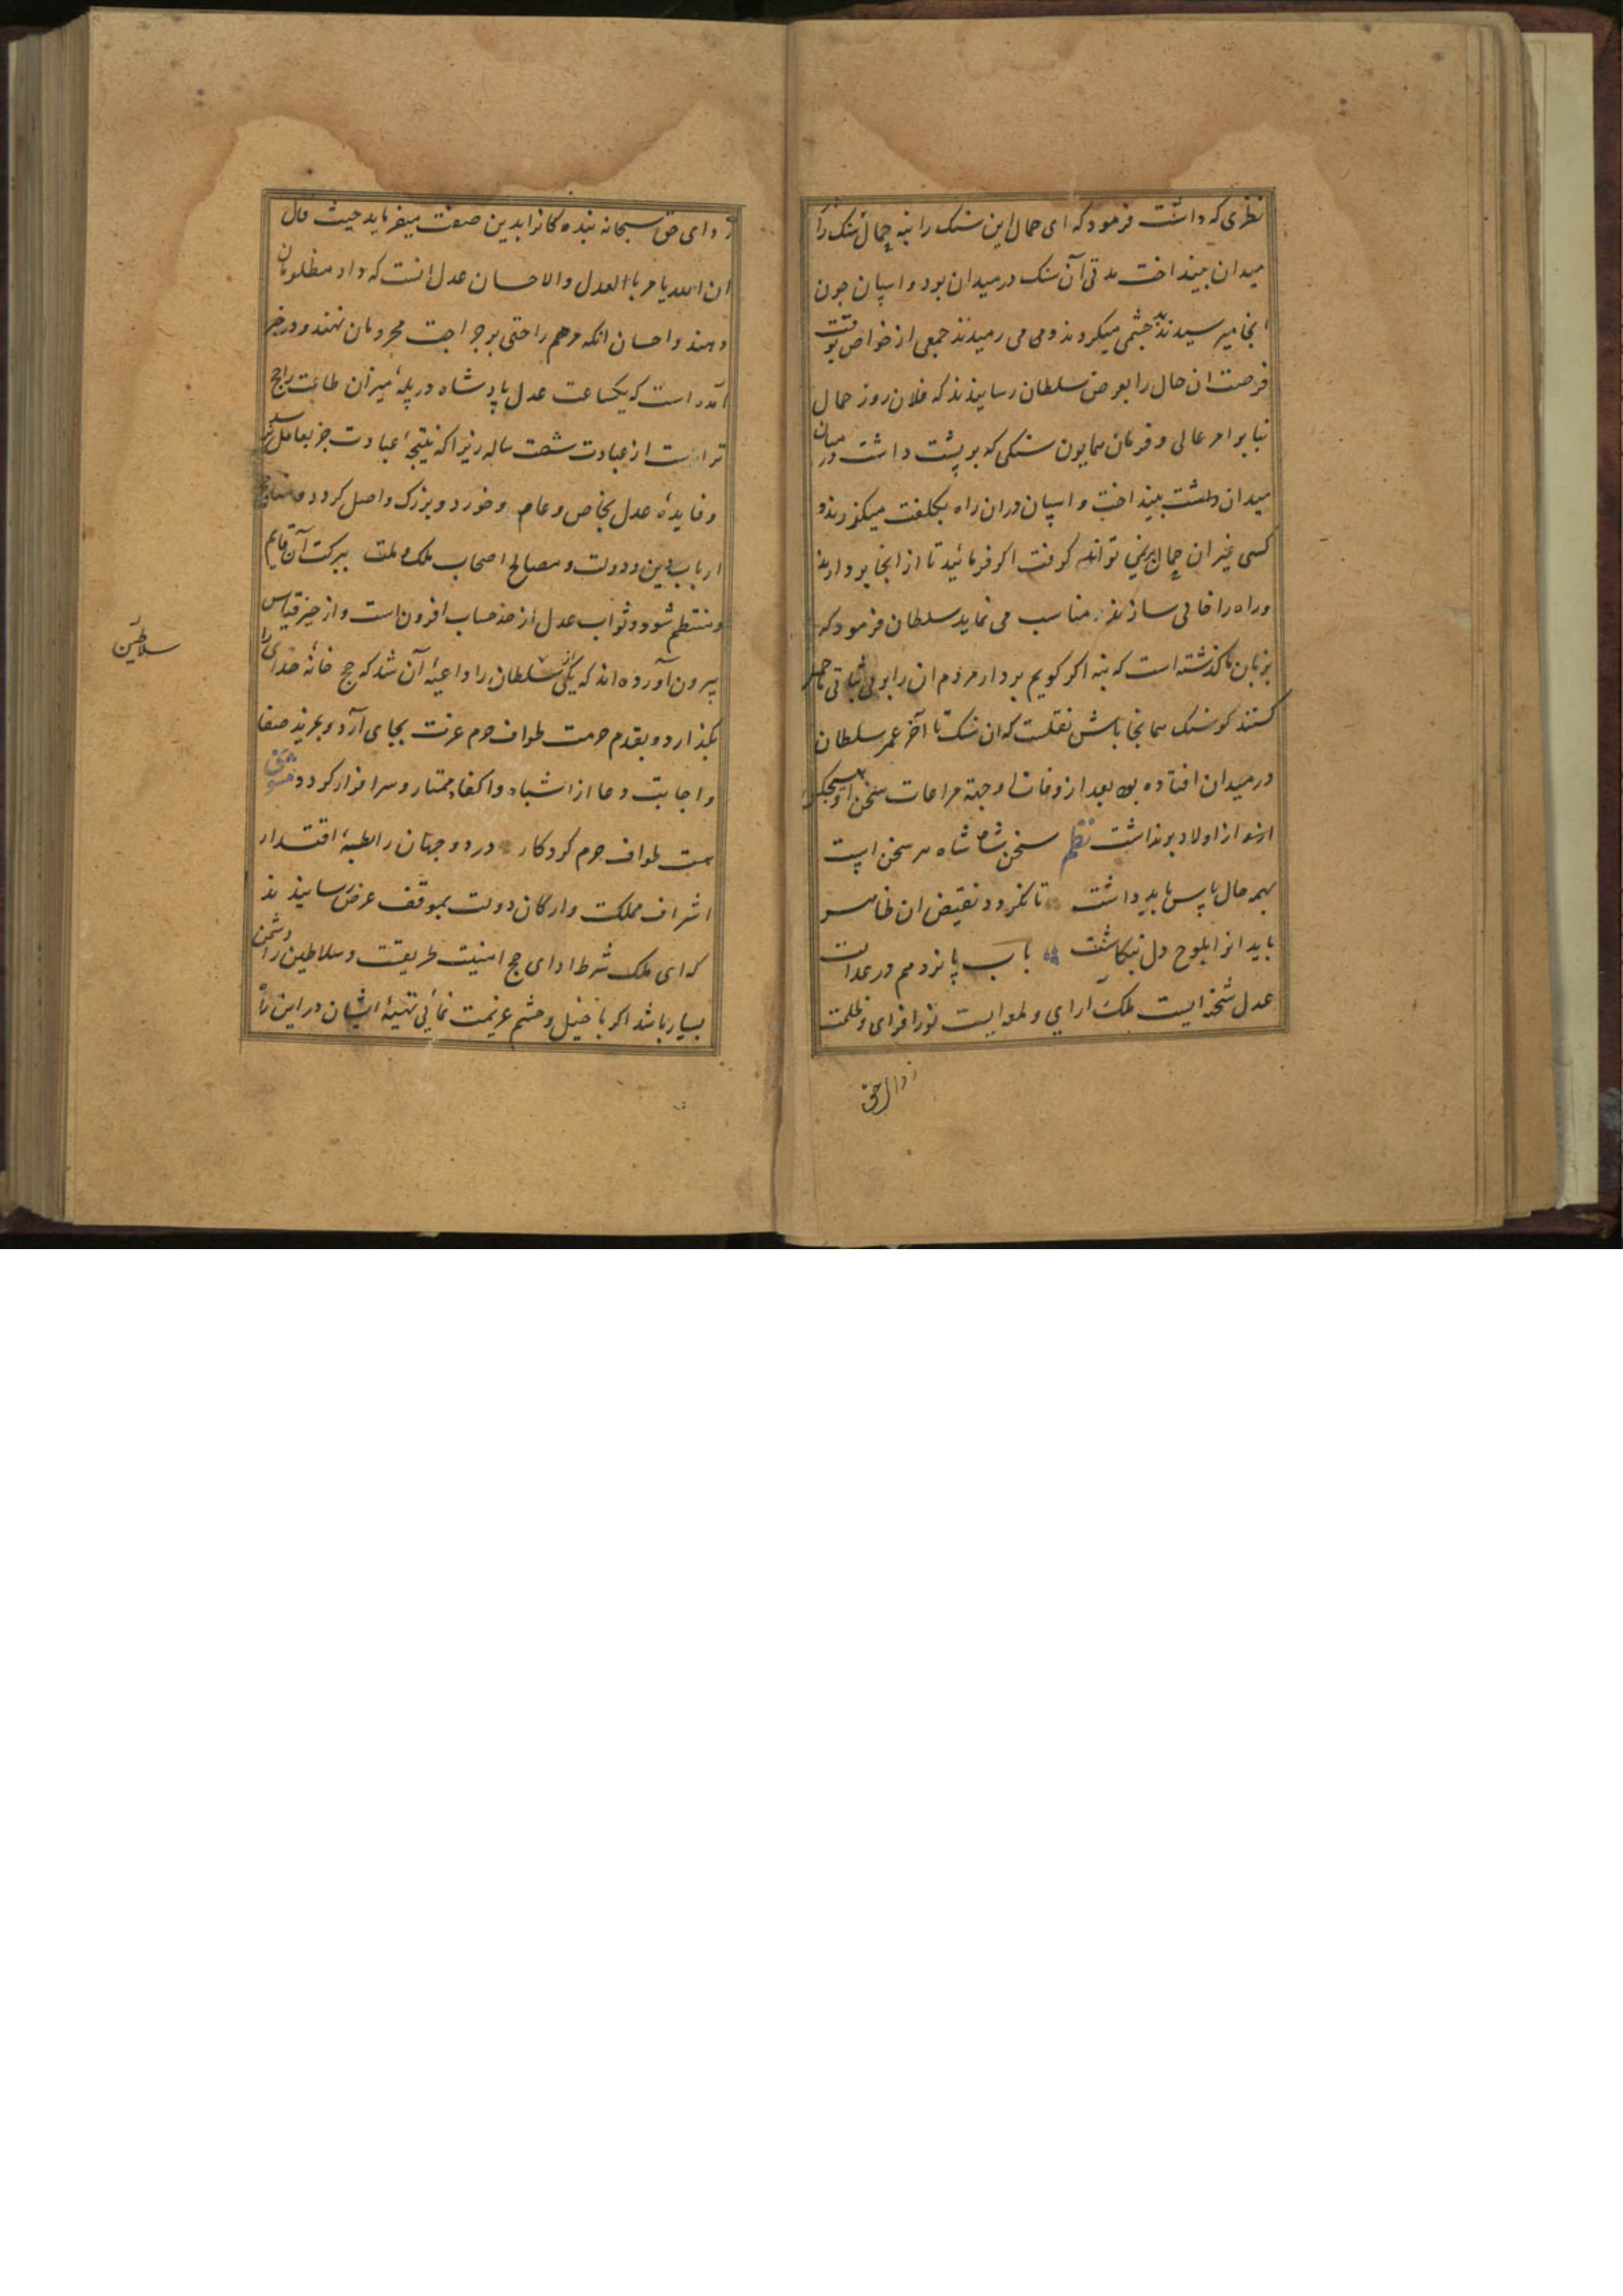 نظری که داشت فرمود که ای حمال این سنک را بنه حمال سنک را
میدان بینداخت مدتی آن سنک در میدان بود و اسپان چون
انجا میرسیدند چشمی میکردند و می رمیدند جمعی از خواص بوقت
فرصت ان حال را بعرض سلطان رسانیدند که فلان روز حمال
بنابر امر عالی و فرمان همایون سنکی که بر پشت داشت در میان
میدان بینداخت و اسپان دران راه بکلفت میکذرند و
کسی غیر ان حمال برنمی تواند کرفت اکر فرمائید تا از انجا بردارند
و راه را خالی سازند مناسب می نماید سلطان فرمود که
بر زبان ما کذشته است که بنه اکر کویم بردار مردم ان را بر بی ثباتی ما حمل
کنند کو سنک همانجا باش نقلست که ان سنک تا آخر عمر سلطان
در میدان افتاده بود بعد از وفات او جهة مراعات سخن او هیچکس
از اولاد برنداشت نظم سخن شاه شاه هر سخن است
بهمه حال پاس باید داشت تا نکردد نقیض ان ظاهر
باید انرا بلوح دل نکاشت باب پانزدهم در عدالت
عدل شحنه ایست ملک آرای و لمعه ایست نور افزای و ظلمت
زدای حق
زدای حق سبحانه بنده کانرا بدین صفت میفرماید حیث قال
ان الله یامر باالعدل والاحسان عدل انست که داد مظلومان
دهند و احسان انکه مرهم راحتی بر جراحت محرومان نهند و در خبر
آمده است که یکساعت عدل پادشاه در پلهٔ میزان طاعت راجح
تر است از عبادت شصت ساله زیرا که نتیجهٔ عبادت جز بعامل نرسد
و فایدهٔ عدل بخاص و عام و خورد و بزرک واصل کردد و مناهج
ارباب دین و دولت و مصالح اصحاب ملک و ملت ببرکت آن قایم
و منتظم شود و ثواب عدل از حد حساب افزون است و از حیز قیاس
بیرون آورده اند که یکی از سلطان را داعیهٔ آن شد که حج خانهٔ خدای را
بکذارد و بقدم حرمت طواف حرم عزت بجای آرد و بمزید صفا
و اجابت دعا از اشباه و اکفا ممتاز و سرافراز کردد
هست طواف حرم کردکار در دو جهان رابطهٔ اقتدار
اشراف مملکت و ارکان دولت بموقف عرض رسانیدند
که ای ملک شرط ادای حج امنیت طریقت و سلاطین را دشمن
بسیار باشد اکر با خیل و حشم عزیمت نمائی تهیهٔ ایشان در این راه
سلاطین